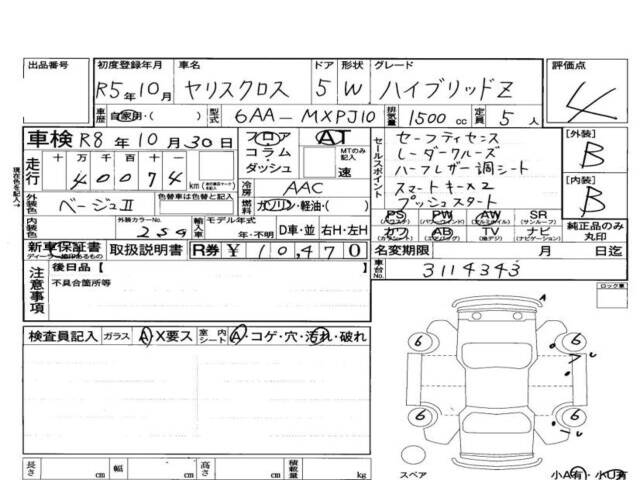 出品番号 初度登録年月 車名 ドア 形状 グレード 評価点
R5年10月 ヤリスクロス 5 W ハイブリッドZ 4
車歴 自家用・( ) 型式 6AA-MXPJ10 排気量 1500cc 定員 5人
車検 R8年10月30日 フロア コラム ダッシュ AT MTのみ記入 速
セールスポイント
セーフティセンス
レーダークルーズ
ハーフレザー調シート
スマートキー×2
プッシュスタート
[外装] B
[内装] B
現在色を記入→
走行 十 万 千 百 十 一
4 0 0 7 4 km
冷房 AAC
外装色 ベージュⅡ 色替車は色替と記入 燃料 ガソリン・軽油・( )
内装色 外装カラーNo. 2S9 輸入車 モデル年式 年・不明 D車・並 右H・左H
PS (パワステ) PW (パワーウインド) AW (アルミホイル) SR (サンルーフ)
カワ (カワシート) AB (エアB) TV (地デジ) ナビ (ナビゲーション)
純正品のみ丸印
新車保証書 ディーラー捺印あるもの 取扱説明書 R券 ¥10,470 名変期限 月 日迄
車台No. 3114343
注意事項 後日品【 】
不具合箇所等
ロック車
検査員記入 ガラス A・X要ス 室内シート A・コゲ・穴・汚れ・破れ
A
6 6
6 6
U
U
スペア
小A有・小U有
長さ cm 幅 cm 高さ cm 積載量 kg